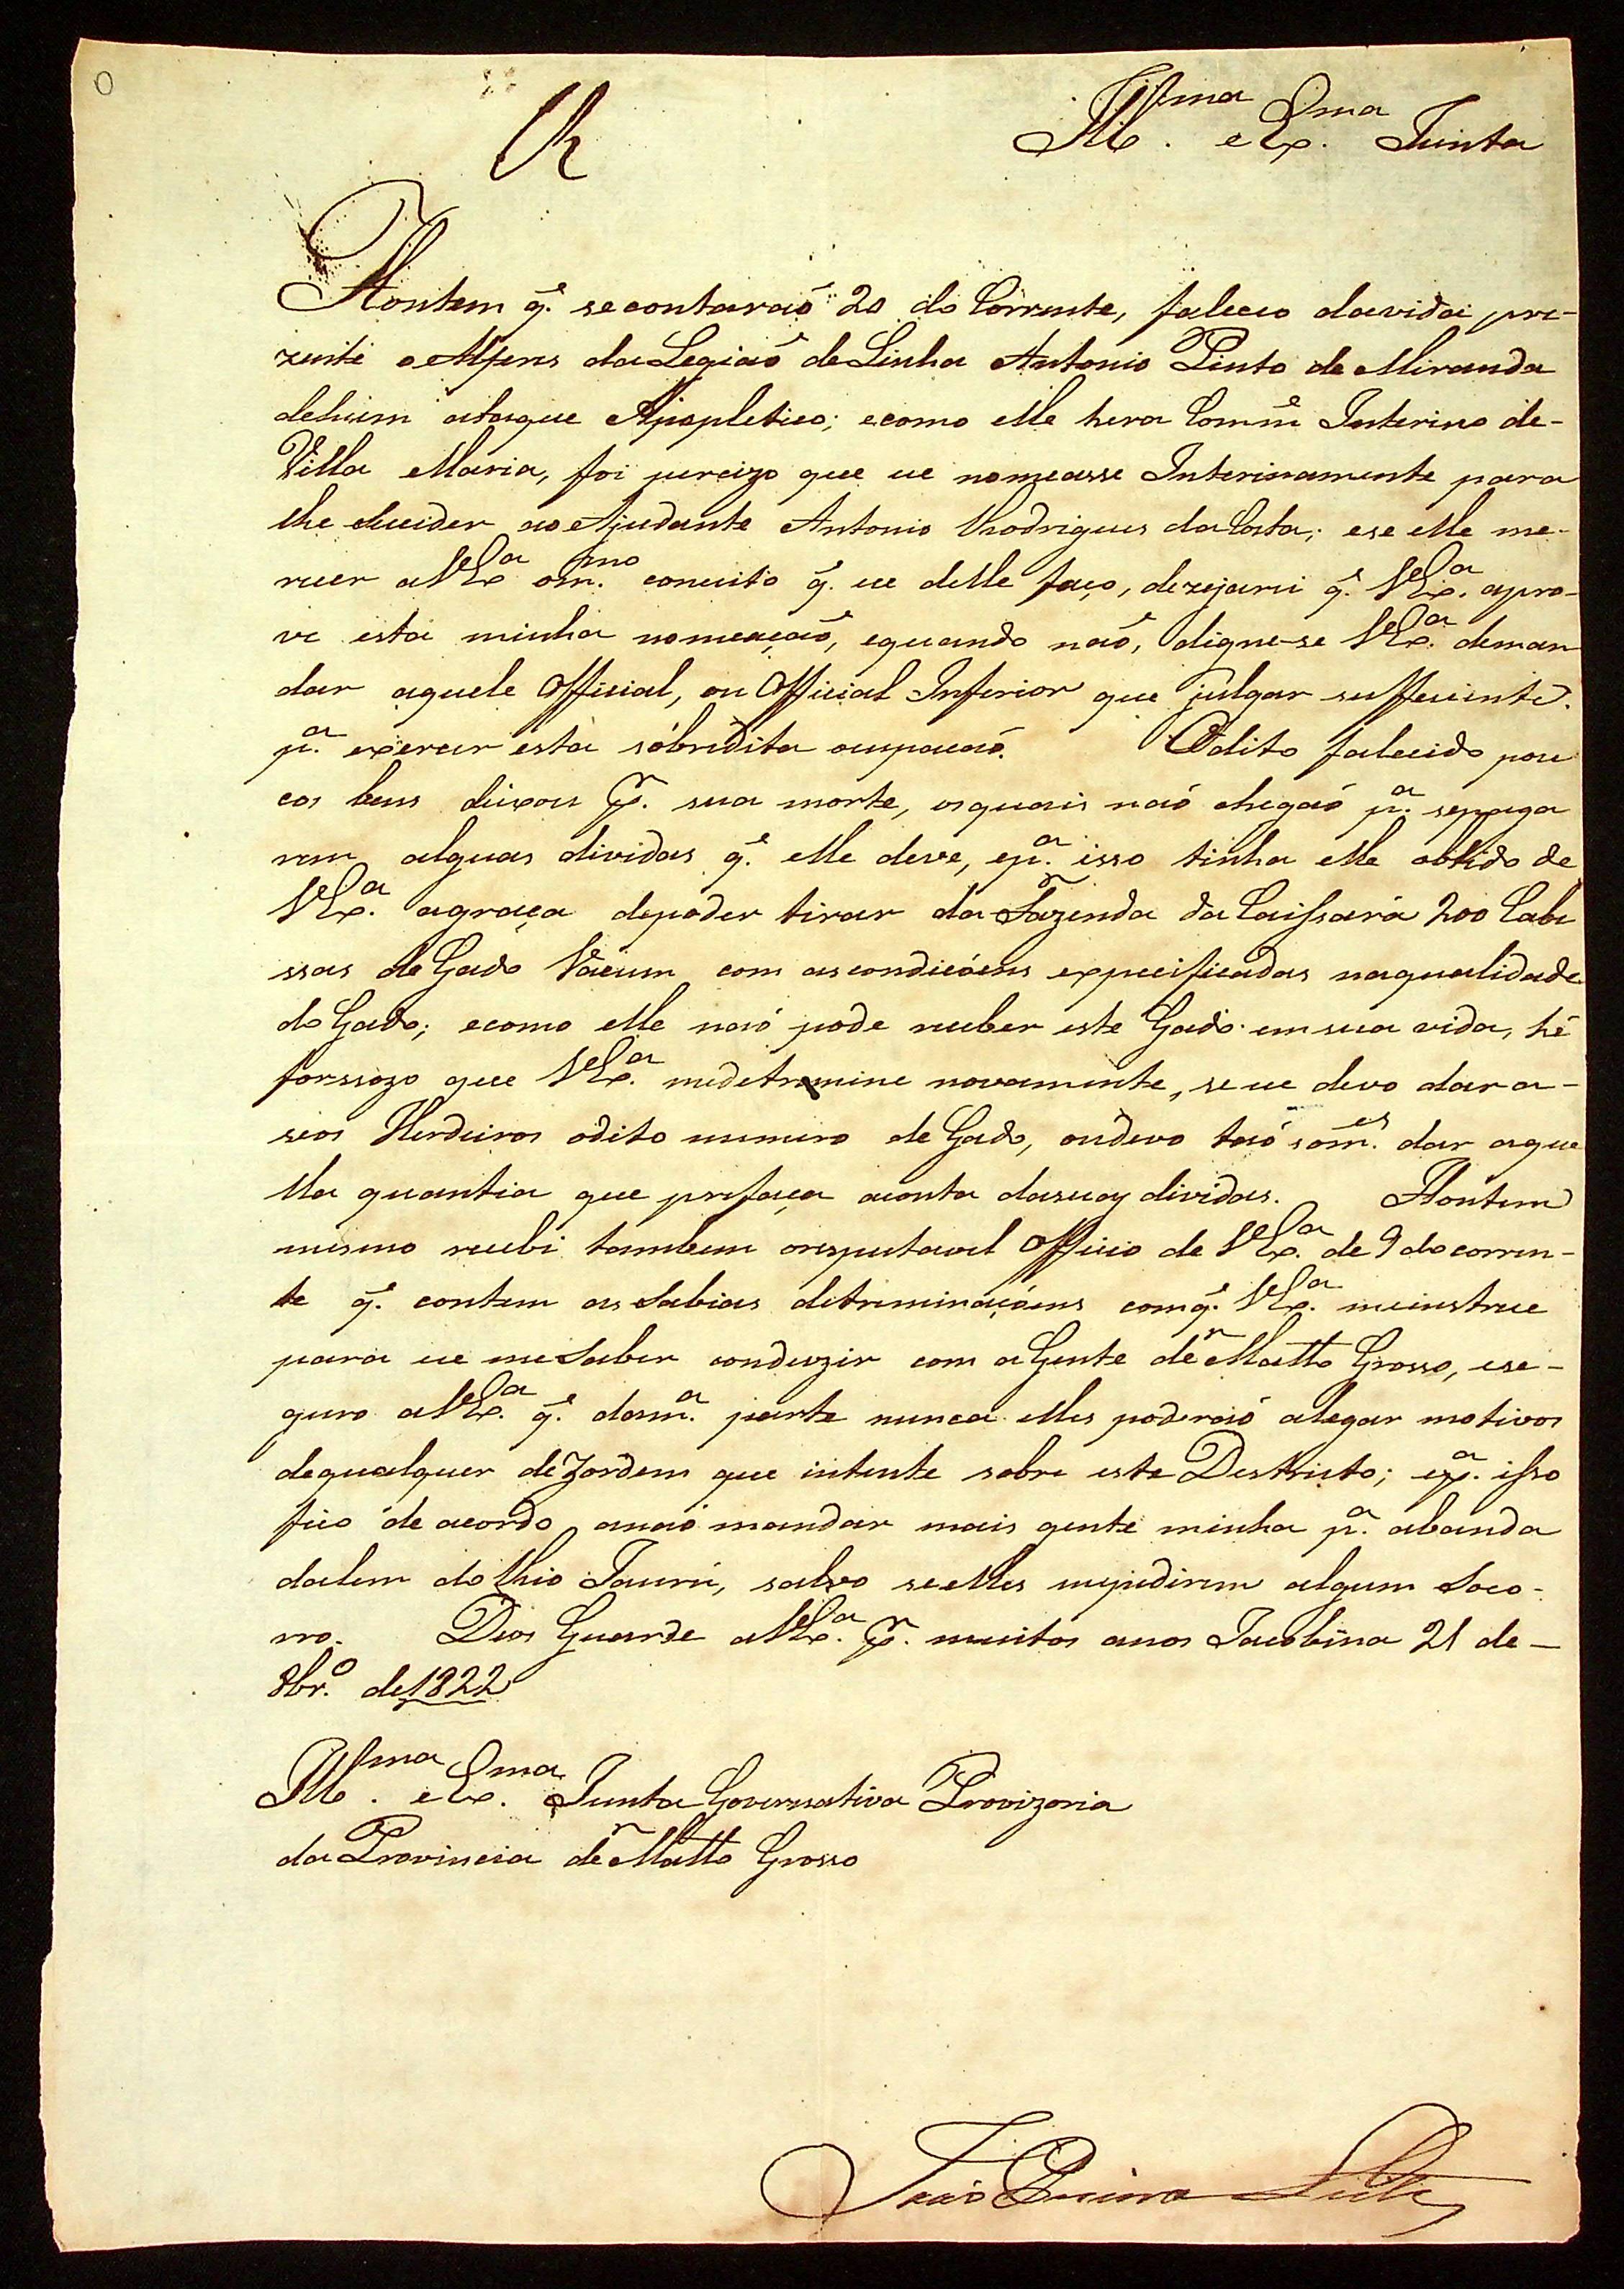 R
Ill.ma e Ex.ma Junta
Hontem q.e se contaraõ 20 do Corrente, faleceo davida pre-
zente o Alferes da Legiaõ de Linha Antonio Pinto de Miranda
dehum ataque Apopletico; ecomo elle hera Comm.e Interino de-
Villa Maria, foi percizo que eu nomeasse Interinamente para
lhe suceder ao Ajudante Antonio Rodrigues da Costa; ese elle me-
recer a V Ex.a o m.mo conceito q.e eu delle faço, dezejarei q.e V Ex.a apro-
ve esta minha nomeaçaõ, equando naõ, digne-se V Ex.a deman
dar aquele Official, ou Official Inferior que julgar suffeciente
p.a exercer está sobredita ocupacaó. Odito falecido pou
cos bens deixou p.r sua morte, osquais naó chegaó p.a sepaga
rem alguas dividas q.e elle deve, ep.a isso tinha elle obtido de
V Ex.a agraça depoder tirar da Fazenda da Caissara 200 Cabe
ssas de Gado Vacum com ascondicóens expecificadas naqualidade
do Gado; ecomo elle naó pode receber este Gado em sua vida, hé
forssozo que V Ex.a medetremine novamente, se eu devo dar a-
seos Herdeiros odito numero de Gado, oudevo taó som.es dar aque
lla quantia que prefaça aconta dasuas dividas. Hontem
mesmo recebi tambem orespeitavel Officio de V Ex.a de 9 do corren-
te q.e contem as Sabias detreminaçóens comq.e V Ex.a meinstrue
para eu me Saber conduzir com a Gente de Matto Grosso, ese-
guro a V Ex.a q.e dam.a parte nunca elles poderaó alegar motivos
dequalquer deZordem que intente sobre este Destricto; ep.a isso
fico de acordo anaó mandar mais gente minha p.a abanda
dalem do Rio Jaurú, salvo seelles mepedirem algum Soco-
rro. Deos Guarde a V Ex.a p.r muitos anos Jacobina 21 de-
8br.o de 1822
Ill.ma e Ex.ma Junta Governativa Provizoria
da Provincia de Matto Grosso
Joaó Pereira Leite